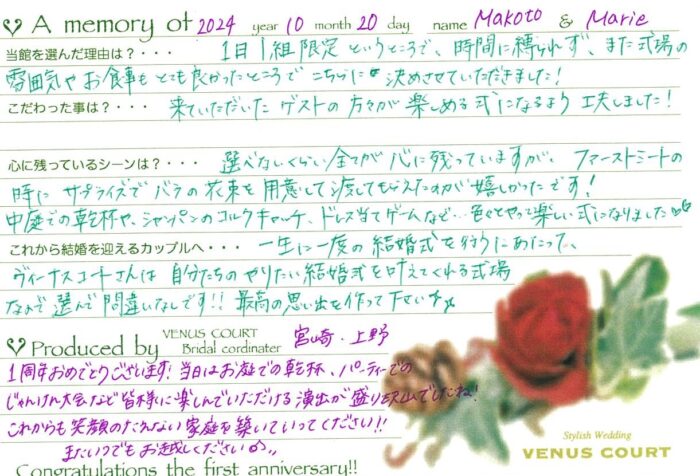 A memory of 2024 year 10 month 20 day name Makoto & Marie
当館を選んだ理由は？・・・ 1日1組限定というところで、時間に縛られず、また式場の
雰囲気やお食事もとても良かったところでこちらに決めさせていただきました！
こだわった事は？・・・ 来ていただいたゲストの方々が楽しめる式になるよう工夫しました！
心に残っているシーンは？・・・ 選べないくらい全てが心に残っていますが、ファーストミートの
時にサプライズでバラの花束を用意して渡してもらえたのが嬉しかったです！
中庭での乾杯や、シャンパンのコルクキャッチ、ドレス当てゲームなど…色々とやって楽しい式になりました
これから結婚を迎えるカップルへ・・・ 一生に一度の結婚式を行うにあたって、
ヴィーナスコートさんは自分たちのやりたい結婚式を叶えてくれる式場
なので選んで間違いなしです!! 最高の思い出を作って下さい
Produced by VENUS COURT Bridal cordinater 宮崎・上野
1周年おめでとうございます！当日はお庭での乾杯、パーティーでの
じゃんけん大会など皆様に楽しんでいただける演出が盛り沢山でしたね！
これからも笑顔のたえない家庭を築いていってください!!
またいつでもお越しくださいね
Stylish Wedding
VENUS COURT
Congratulations the first anniversary!!